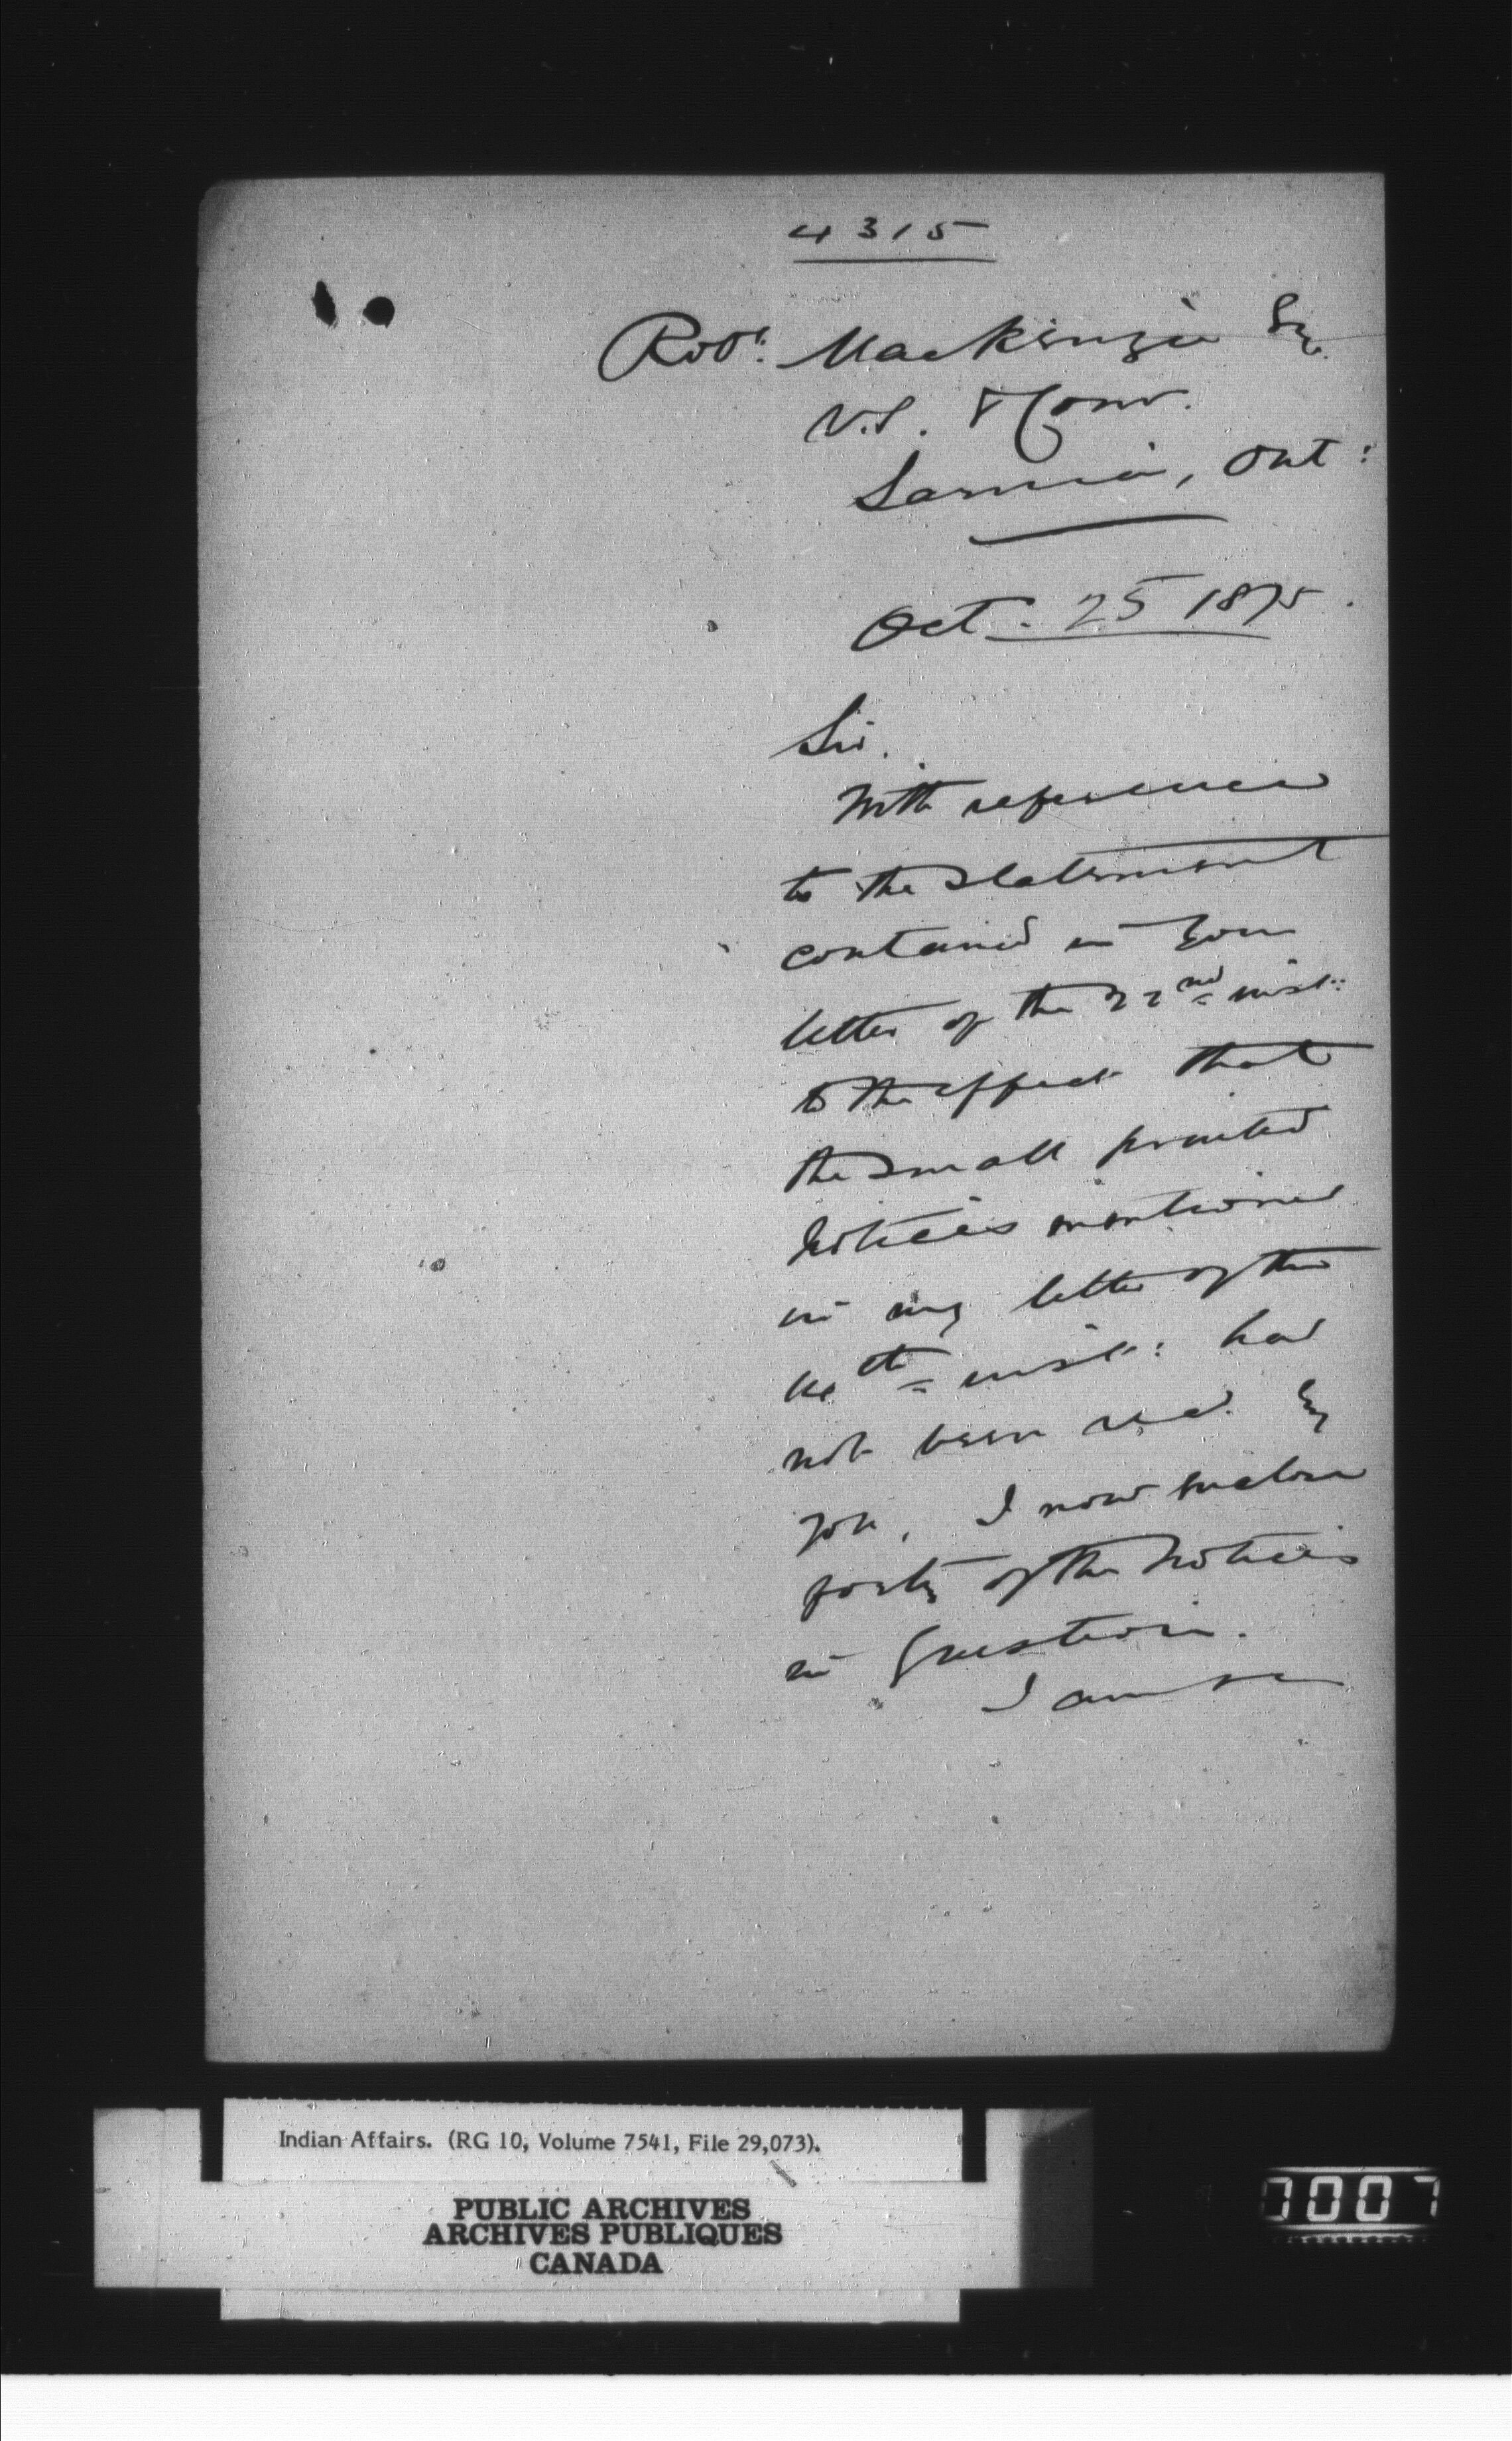 4315
Robt. Mackenzie Esq.
V.S. & Comr.
Sarnia, Ont:
Oct. 25 1875.
Sir.
With reference
to the statement
contained in your
letter of the 22nd inst:
to the effect that
the small printed
Notices mentioned
in my letter of the
th inst: had
not been used by
you, I now enclose
forty of the Notices
in question.
I am
Indian Affairs. (RG 10, Volume 7541, File 29,073).
PUBLIC ARCHIVES
ARCHIVES PUBLIQUES
CANADA
0007